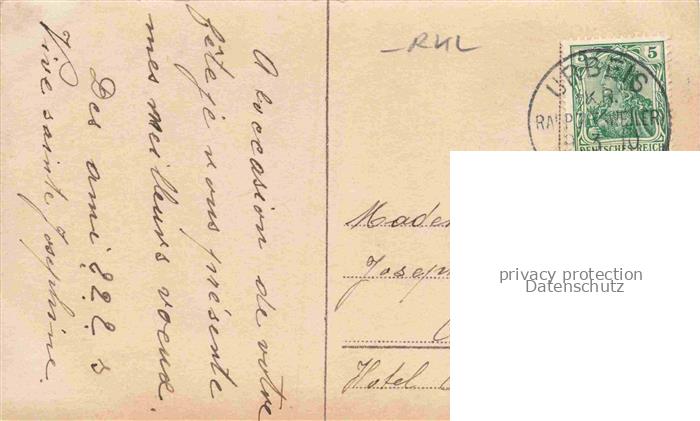 A l'occasion de votre
fête je vous présente
mes meilleurs voeux.
Des ami ??? s
Vive sainte Josephine.
RKL
5 5
URBEIS
DEUTSCHES REICH
Madem
Joseph
Hotel
privacy protection
Datenschutz